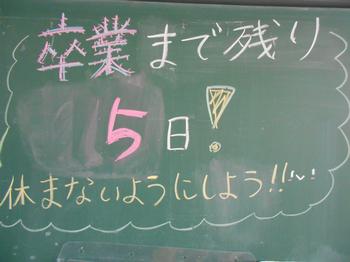 卒業まで残り
5日!
休まないようにしよう!!